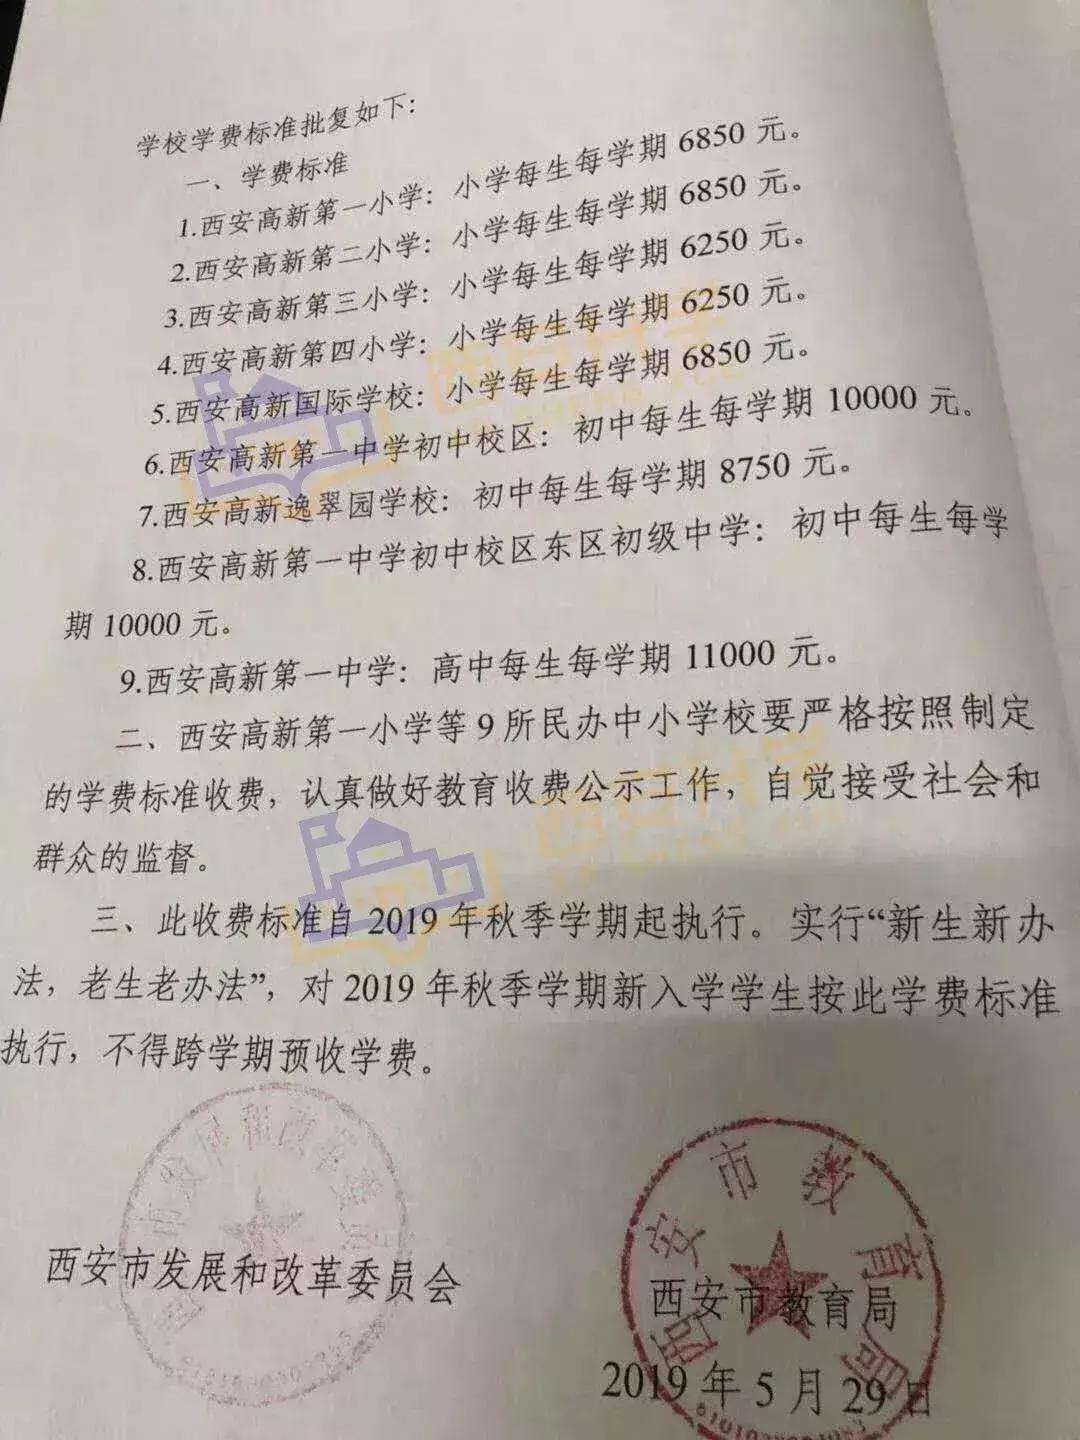 学校学费标准批复如下：
一、学费标准
1.西安高新第一小学：小学每生每学期 6850 元。
2.西安高新第二小学：小学每生每学期 6850 元。
3.西安高新第三小学：小学每生每学期 6250 元。
4.西安高新第四小学：小学每生每学期 6250 元。
5.西安高新国际学校：小学每生每学期 6850 元。
6.西安高新第一中学初中校区：初中每生每学期 10000 元。
7.西安高新逸翠园学校：初中每生每学期 8750 元。
8.西安高新第一中学初中校区东区初级中学：初中每生每学
期 10000 元。
9.西安高新第一中学：高中每生每学期 11000 元。
二、西安高新第一小学等 9 所民办中小学校要严格按照制定
的学费标准收费，认真做好教育收费公示工作，自觉接受社会和
群众的监督。
三、此收费标准自 2019 年秋季学期起执行。实行“新生新办
法，老生老办法”，对 2019 年秋季学期新入学学生按此学费标准
执行，不得跨学期预收学费。
西安市发展和改革委员会
西安市教育局
西安市教育局
2019 年 5 月 29 日